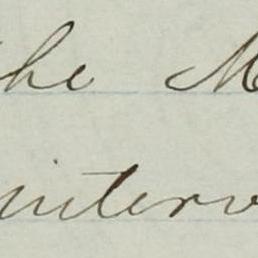 the M
interv